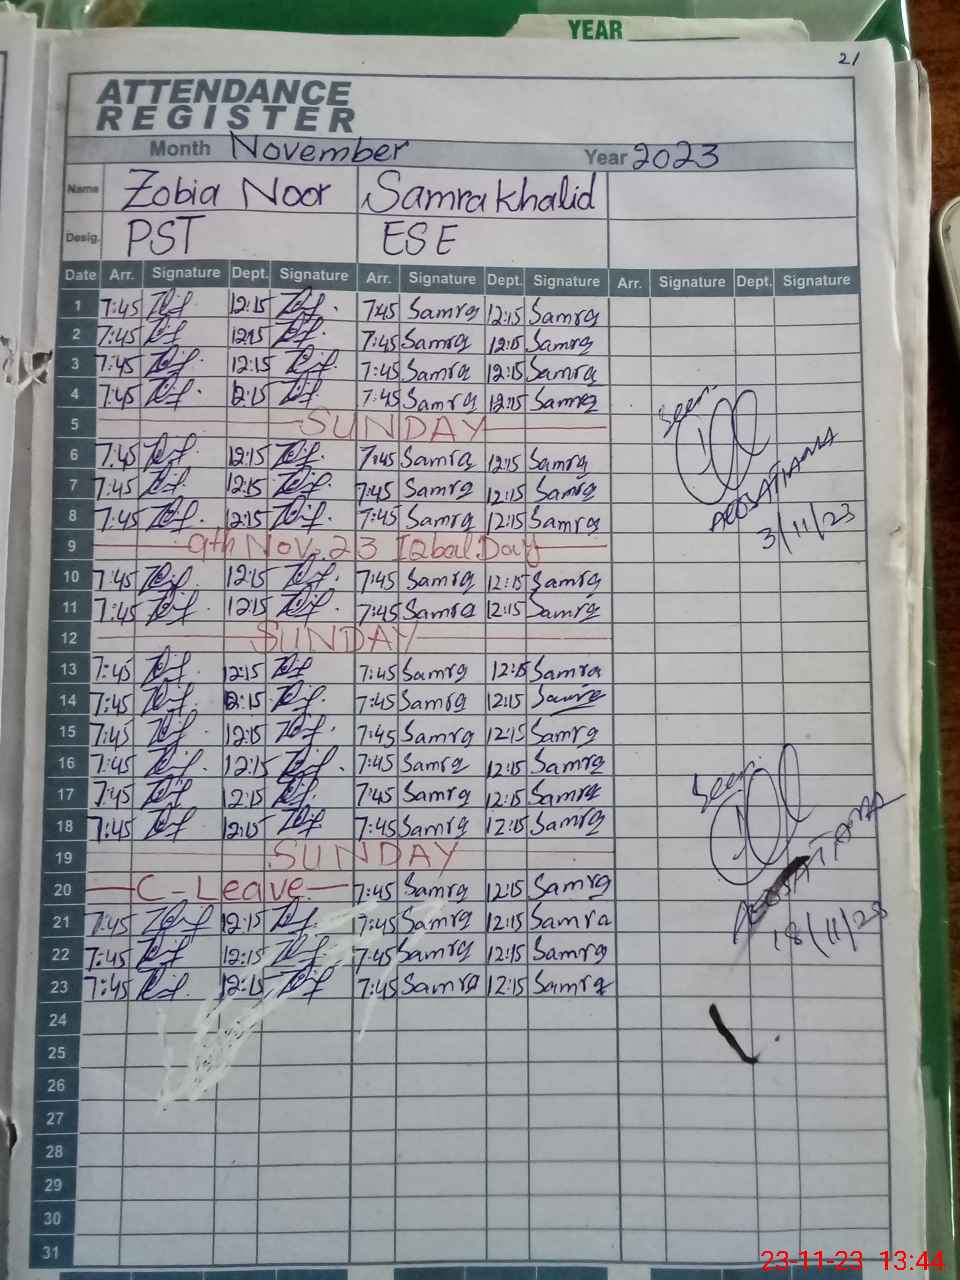 YEAR
21
ATTENDANCE
REGISTER
Month November Year 2023
Name Zobia Noor Samra Khalid
Desig. PST ESE
Date Arr. Signature Dept. Signature Arr. Signature Dept. Signature Arr. Signature Dept. Signature
1 7:45 12:15 7:45 Samra 12:15 Samra
2 7:45 12:15 7:45 Samra 12:15 Samra
3 7:45 12:15 7:45 Samra 12:15 Samra
4 7:45 12:15 7:45 Samra 12:15 Samra
Seen
5 SUNDAY
6 7:45 12:15 7:45 Samra 12:15 Samra
7 7:45 12:15 7:45 Samra 12:15 Samra
8 7:45 12:15 7:45 Samra 12:15 Samra
3/11/23
9 9th Nov. 23 Iqbal Day
10 7:45 12:15 7:45 Samra 12:15 Samra
11 7:45 12:15 7:45 Samra 12:15 Samra
12 SUNDAY
13 7:45 12:15 7:45 Samra 12:15 Samra
14 7:45 12:15 7:45 Samra 12:15 Samra
15 7:45 12:15 7:45 Samra 12:15 Samra
16 7:45 12:15 7:45 Samra 12:15 Samra
Seen
17 7:45 12:15 7:45 Samra 12:15 Samra
18 7:45 12:15 7:45 Samra 12:15 Samra
19 SUNDAY
20 C-Leave 7:45 Samra 12:15 Samra
21 7:45 12:15 7:45 Samra 12:15 Samra
18/11/23
22 7:45 12:15 7:45 Samra 12:15 Samra
23 7:45 12:15 7:45 Samra 12:15 Samra
24
25
26
27
28
29
30
31
23-11-23 13:44